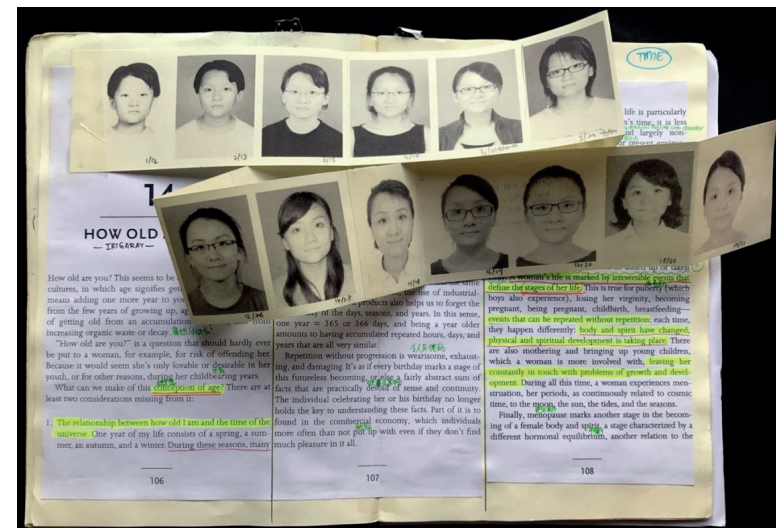 TIME
1/12
2/13
3/15
life is particularly
n's time, it is less
nd largely non-
14
HOW OLD
— IRIGARAY —
How old are you? This seems to be
cultures, in which age signifies
means adding one more year to
from the few years of growing up,
of getting old from an accumulation
increasing organic waste or decay.
"How old are you?" is a question that should hardly ever
be put to a woman, for example, for risk of offending her.
Because it would seem she's only lovable or desirable in her
youth, or for other reasons, during her childbearing years.
What can we make of this conception of age? There are at
least two considerations missing from it:
1. The relationship between how old I am and the time of the
universe. One year of my life consists of a spring, a sum-
mer, an autumn, and a winter. During these seasons, many
106
the same
use of industrial-
products also helps us to forget the
of the days, seasons, and years. In this sense,
one year = 365 or 366 days, and being a year older
amounts to having accumulated repeated hours, days, and
years that are all very similar.
Repetition without progression is wearisome, exhaust-
ing, and damaging. It's as if every birthday marks a stage of
this futureless becoming, or else a fairly abstract sum of
facts that are practically devoid of sense and continuity.
The individual celebrating her or his birthday no longer
holds the key to understanding these facts. Part of it is to
found in the commercial economy, which individuals
more often than not put up with even if they don't find
much pleasure in it all.
107
A woman's life is marked by irreversible events that
define the stages of her life. This is true for puberty (which
boys also experience), losing her virginity, becoming
pregnant, being pregnant, childbirth, breastfeeding—
events that can be repeated without repetition: each time,
they happen differently: body and spirit have changed,
physical and spiritual development is taking place. There
are also mothering and bringing up young children,
which a woman is more involved with, leaving her
constantly in touch with problems of growth and devel-
opment. During all this time, a woman experiences men-
struation, her periods, as continuously related to cosmic
time, to the moon, the sun, the tides, and the seasons.
Finally, menopause marks another stage in the becom-
ing of a female body and spirit, a stage characterized by a
different hormonal equilibrium, another relation to the
108